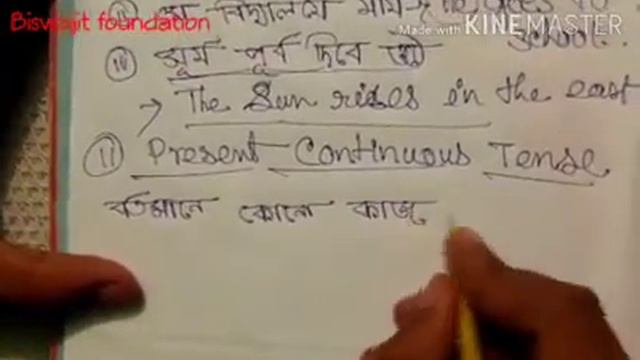 Biswajit foundation
Made with KINEMASTER
বিদ্যালয়ে যায় - He goes to
school.
পূর্ব দিকে
→ The Sun rises in the east
(11) Present Continuous Tense
বর্তমানে কোনো কাজ